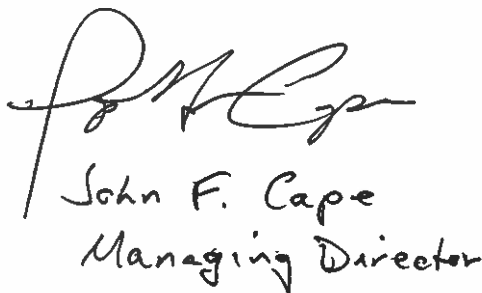 John F. Cape
Managing Director